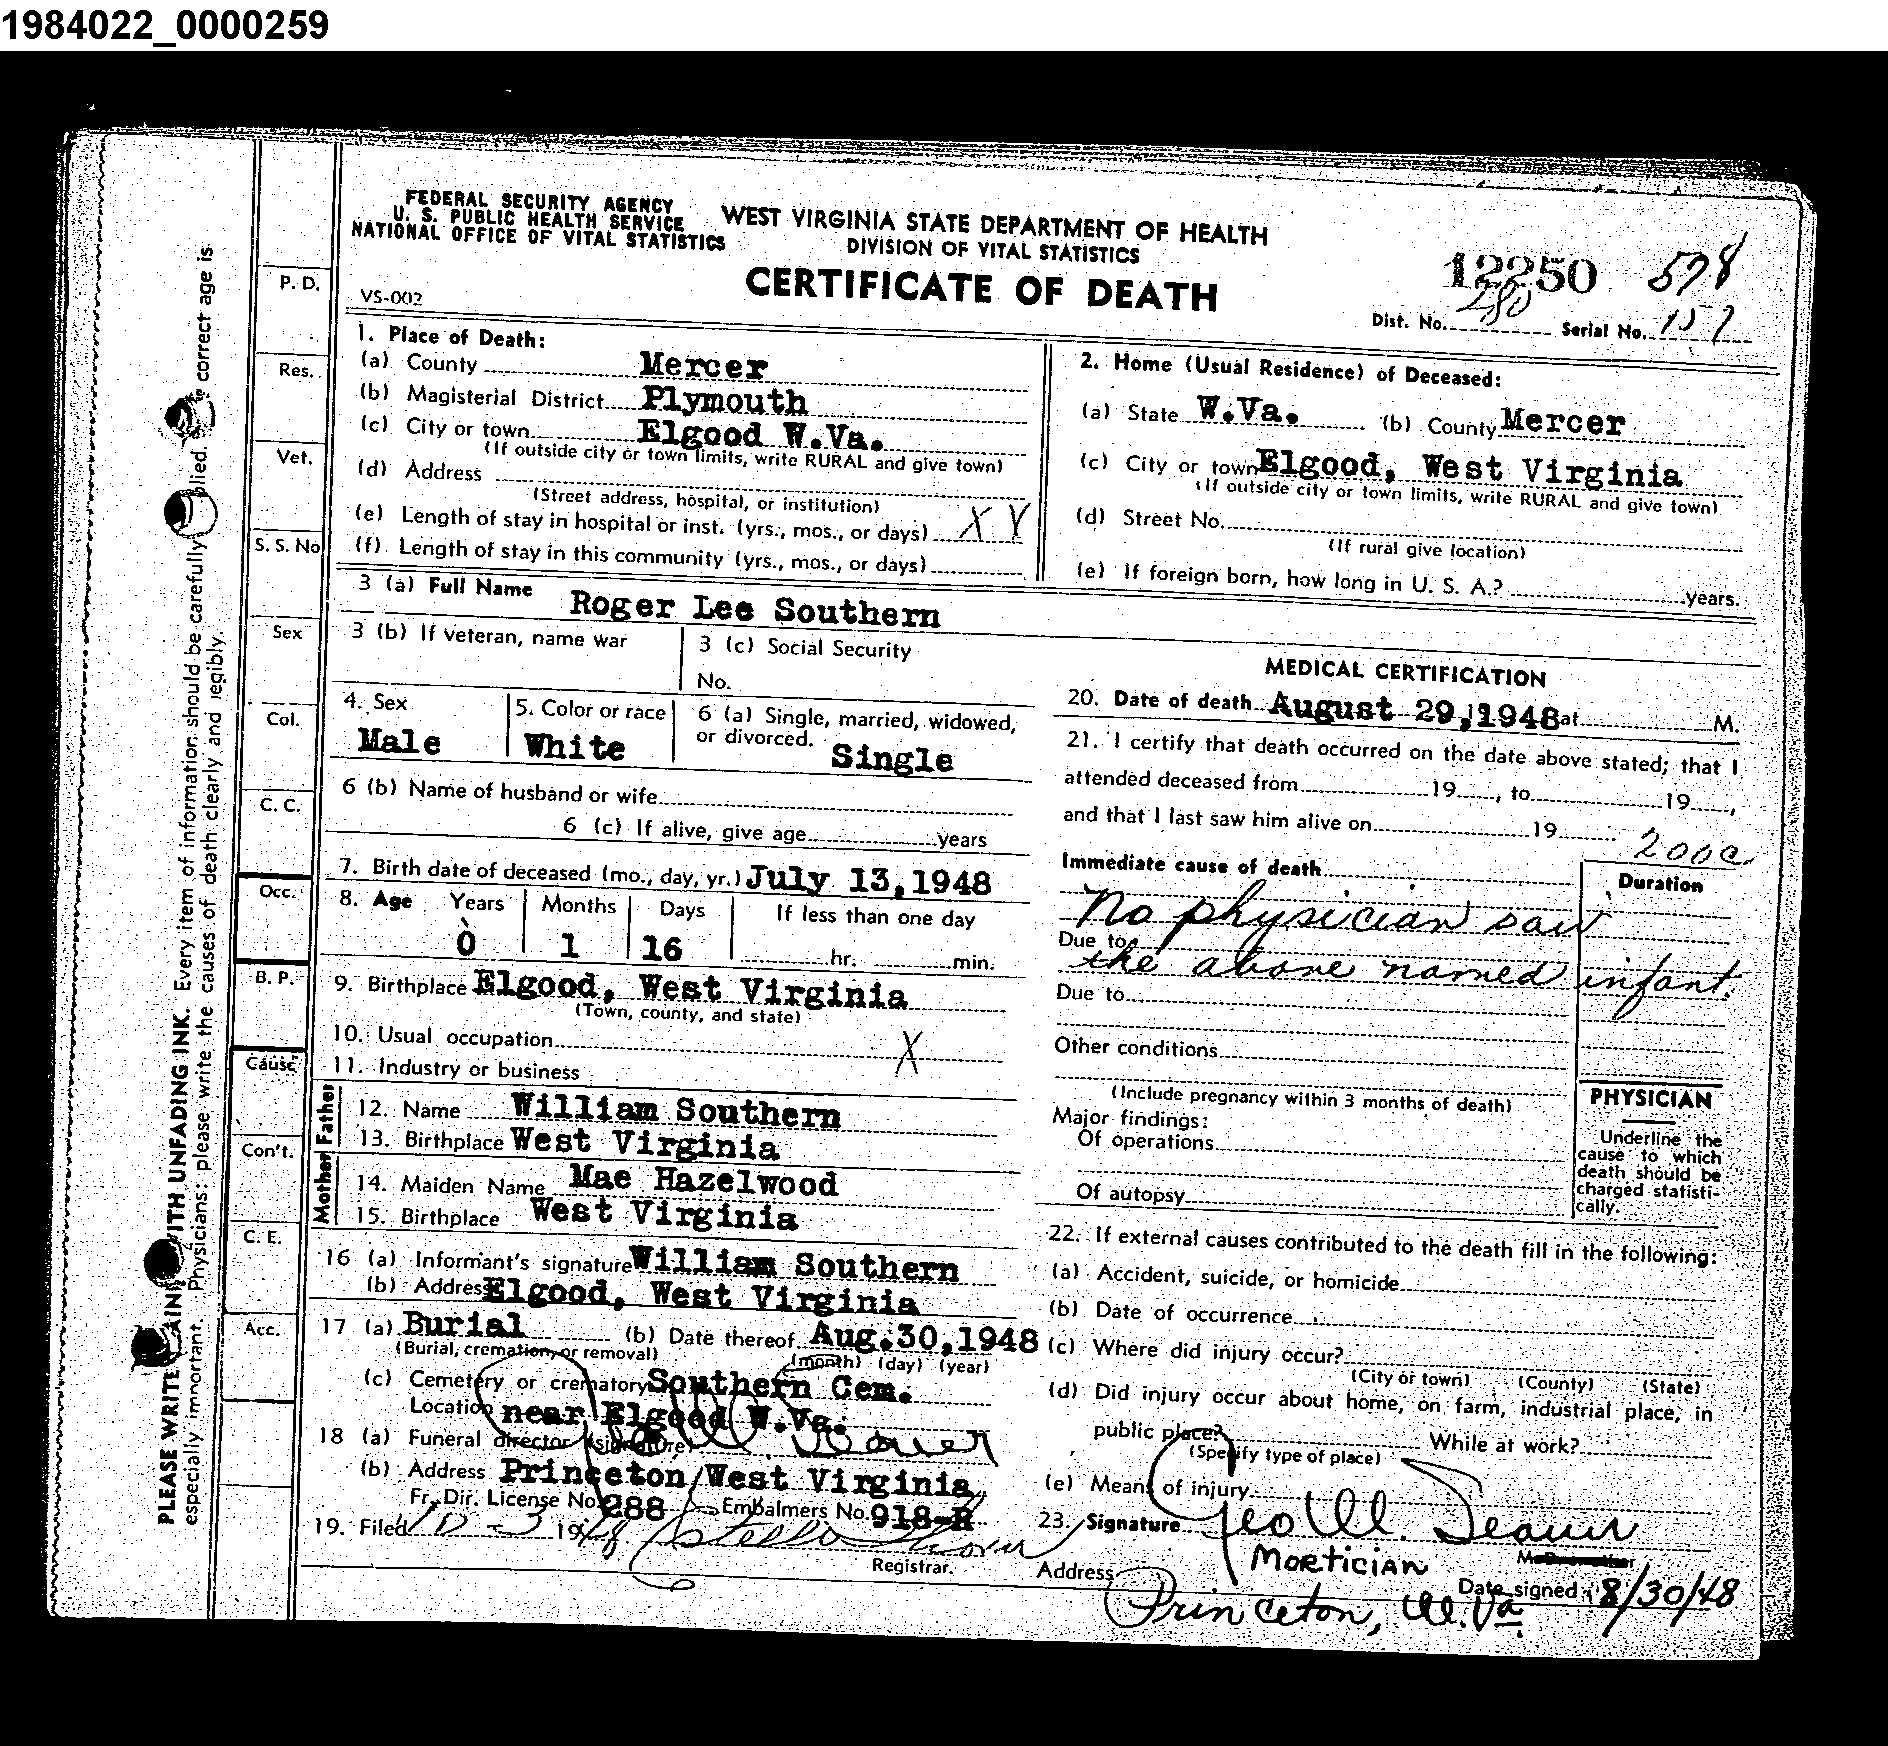 1984022_0000259
FEDERAL SECURITY AGENCY
U. S. PUBLIC HEALTH SERVICE
NATIONAL OFFICE OF VITAL STATISTICS
WEST VIRGINIA STATE DEPARTMENT OF HEALTH
DIVISION OF VITAL STATISTICS
CERTIFICATE OF DEATH
VS-002
12250 578
Dist. No. 280 Serial No. 157
PLEASE WRITE PLAINLY WITH UNFADING INK. Every item of information should be carefully supplied. The correct age is
especially important. Physicians: please write the causes of death clearly and legibly.
P. D.
Res.
Vet.
S. S. No
Sex
Col.
C. C.
Occ.
B. P.
Cause
Con't.
C. E.
Acc.
1. Place of Death:
(a) County Mercer
(b) Magisterial District Plymouth
(c) City or town Elgood W.Va.
(If outside city or town limits, write RURAL and give town)
(d) Address
(Street address, hospital, or institution)
(e) Length of stay in hospital or inst. (yrs., mos., or days) X Y
(f) Length of stay in this community (yrs., mos., or days)
2. Home (Usual Residence) of Deceased:
(a) State W.Va. (b) County Mercer
(c) City or town Elgood, West Virginia
(If outside city or town limits, write RURAL and give town)
(d) Street No.
(If rural give location)
(e) If foreign born, how long in U. S. A.? years.
3 (a) Full Name Roger Lee Southern
3 (b) If veteran, name war
3 (c) Social Security
No.
4. Sex
Male
5. Color or race
White
6 (a) Single, married, widowed,
or divorced. Single
6 (b) Name of husband or wife
6 (c) If alive, give age years
7. Birth date of deceased (mo., day, yr.) July 13, 1948
8. Age Years Months Days If less than one day
0 1 16 hr. min.
9. Birthplace Elgood, West Virginia
(Town, county, and state)
10. Usual occupation X
11. Industry or business
Father
12. Name William Southern
13. Birthplace West Virginia
Mother
14. Maiden Name Mae Hazelwood
15. Birthplace West Virginia
16 (a) Informant's signature William Southern
(b) Address Elgood, West Virginia
17 (a) Burial (b) Date thereof Aug. 30, 1948
(Burial, cremation, or removal) (month) (day) (year)
(c) Cemetery or crematory Southern Cem.
Location near Elgood W.Va.
18 (a) Funeral director (signature) Geo W. Seaver
(b) Address Princeton West Virginia
Fr. Dir. License No. 288 Embalmers No. 918-R
19. Filed 10-3 1948 Stella
Registrar.
MEDICAL CERTIFICATION
20. Date of death August 29, 1948 at M.
21. I certify that death occurred on the date above stated; that I
attended deceased from 19 , to 19 ,
and that I last saw him alive on 19
200a
Immediate cause of death
Duration
No physician saw
Due to
the above named infant.
Due to
Other conditions
(Include pregnancy within 3 months of death)
Major findings:
Of operations
Of autopsy
PHYSICIAN
Underline the
cause to which
death should be
charged statisti-
cally.
22. If external causes contributed to the death fill in the following:
(a) Accident, suicide, or homicide
(b) Date of occurrence
(c) Where did injury occur?
(City or town) (County) (State)
(d) Did injury occur about home, on farm, industrial place, in
public place? While at work?
(Specify type of place)
(e) Means of injury
23. Signature Geo W. Seaver
Mortician
Address Princeton, W.Va. Date signed 8/30/48